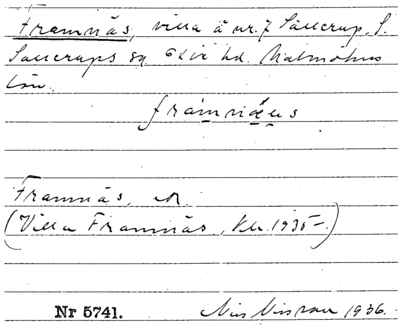 Framnäs, villa å nr. 7 Sallerup, S.
Sallerups sn Oxie hd. Malmöhus
län.
framnäs
Framnäs,
(Villa Framnäs, 1935-)
Nr 5741. Nils Nilsson 1936.